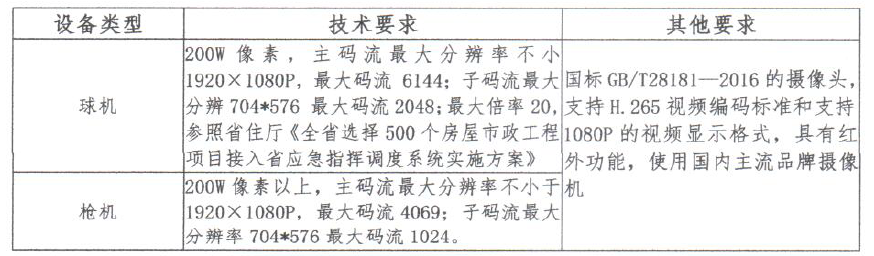 设备类型
技术要求
其他要求
球机
200W像素，主码流最大分辨率不小
1920×1080P，最大码流 6144；子码流最大
分辨704*576 最大码流2048；最大倍率20，
参照省住厅《全省选择500个房屋市政工程
项目接入省应急指挥调度系统实施方案》
国标GB/T28181—2016的摄像头，
支持H.265视频编码标准和支持
1080P的视频显示格式，具有红
外功能，使用国内主流品牌摄像
机
枪机
200W像素以上，主码流最大分辨率不小于
1920×1080P，最大码流4069；子码流最大
分辨率704*576最大码流1024。